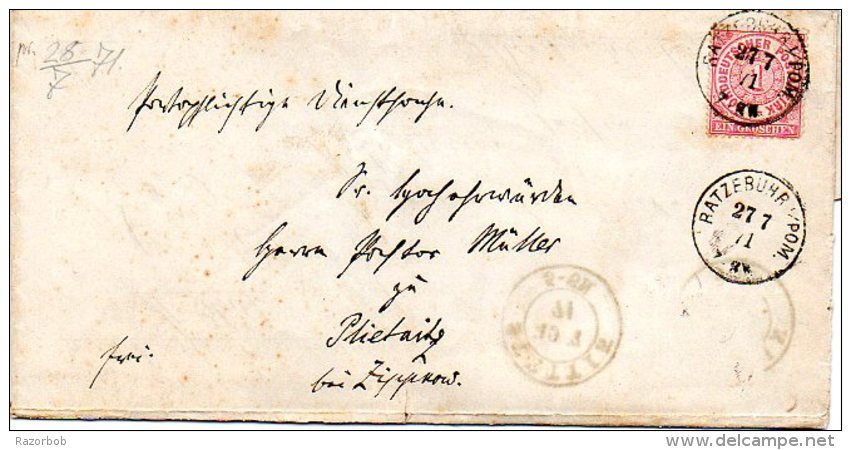 pr. 28/7 71.
Portopflichtige Dienstsache.
Sr. Hochehrwürden
Herrn Pastor Müller
zu
Plietnitz
bei Zippnow.
frei.
RATZEBUHR I/POM.
27 7
71
NORDDEUTSCHER POSTBEZIRK
1
EIN GROSCHEN
RATZEBUHR I/POM.
27 7
71
Razorbob
www.delcampe.net